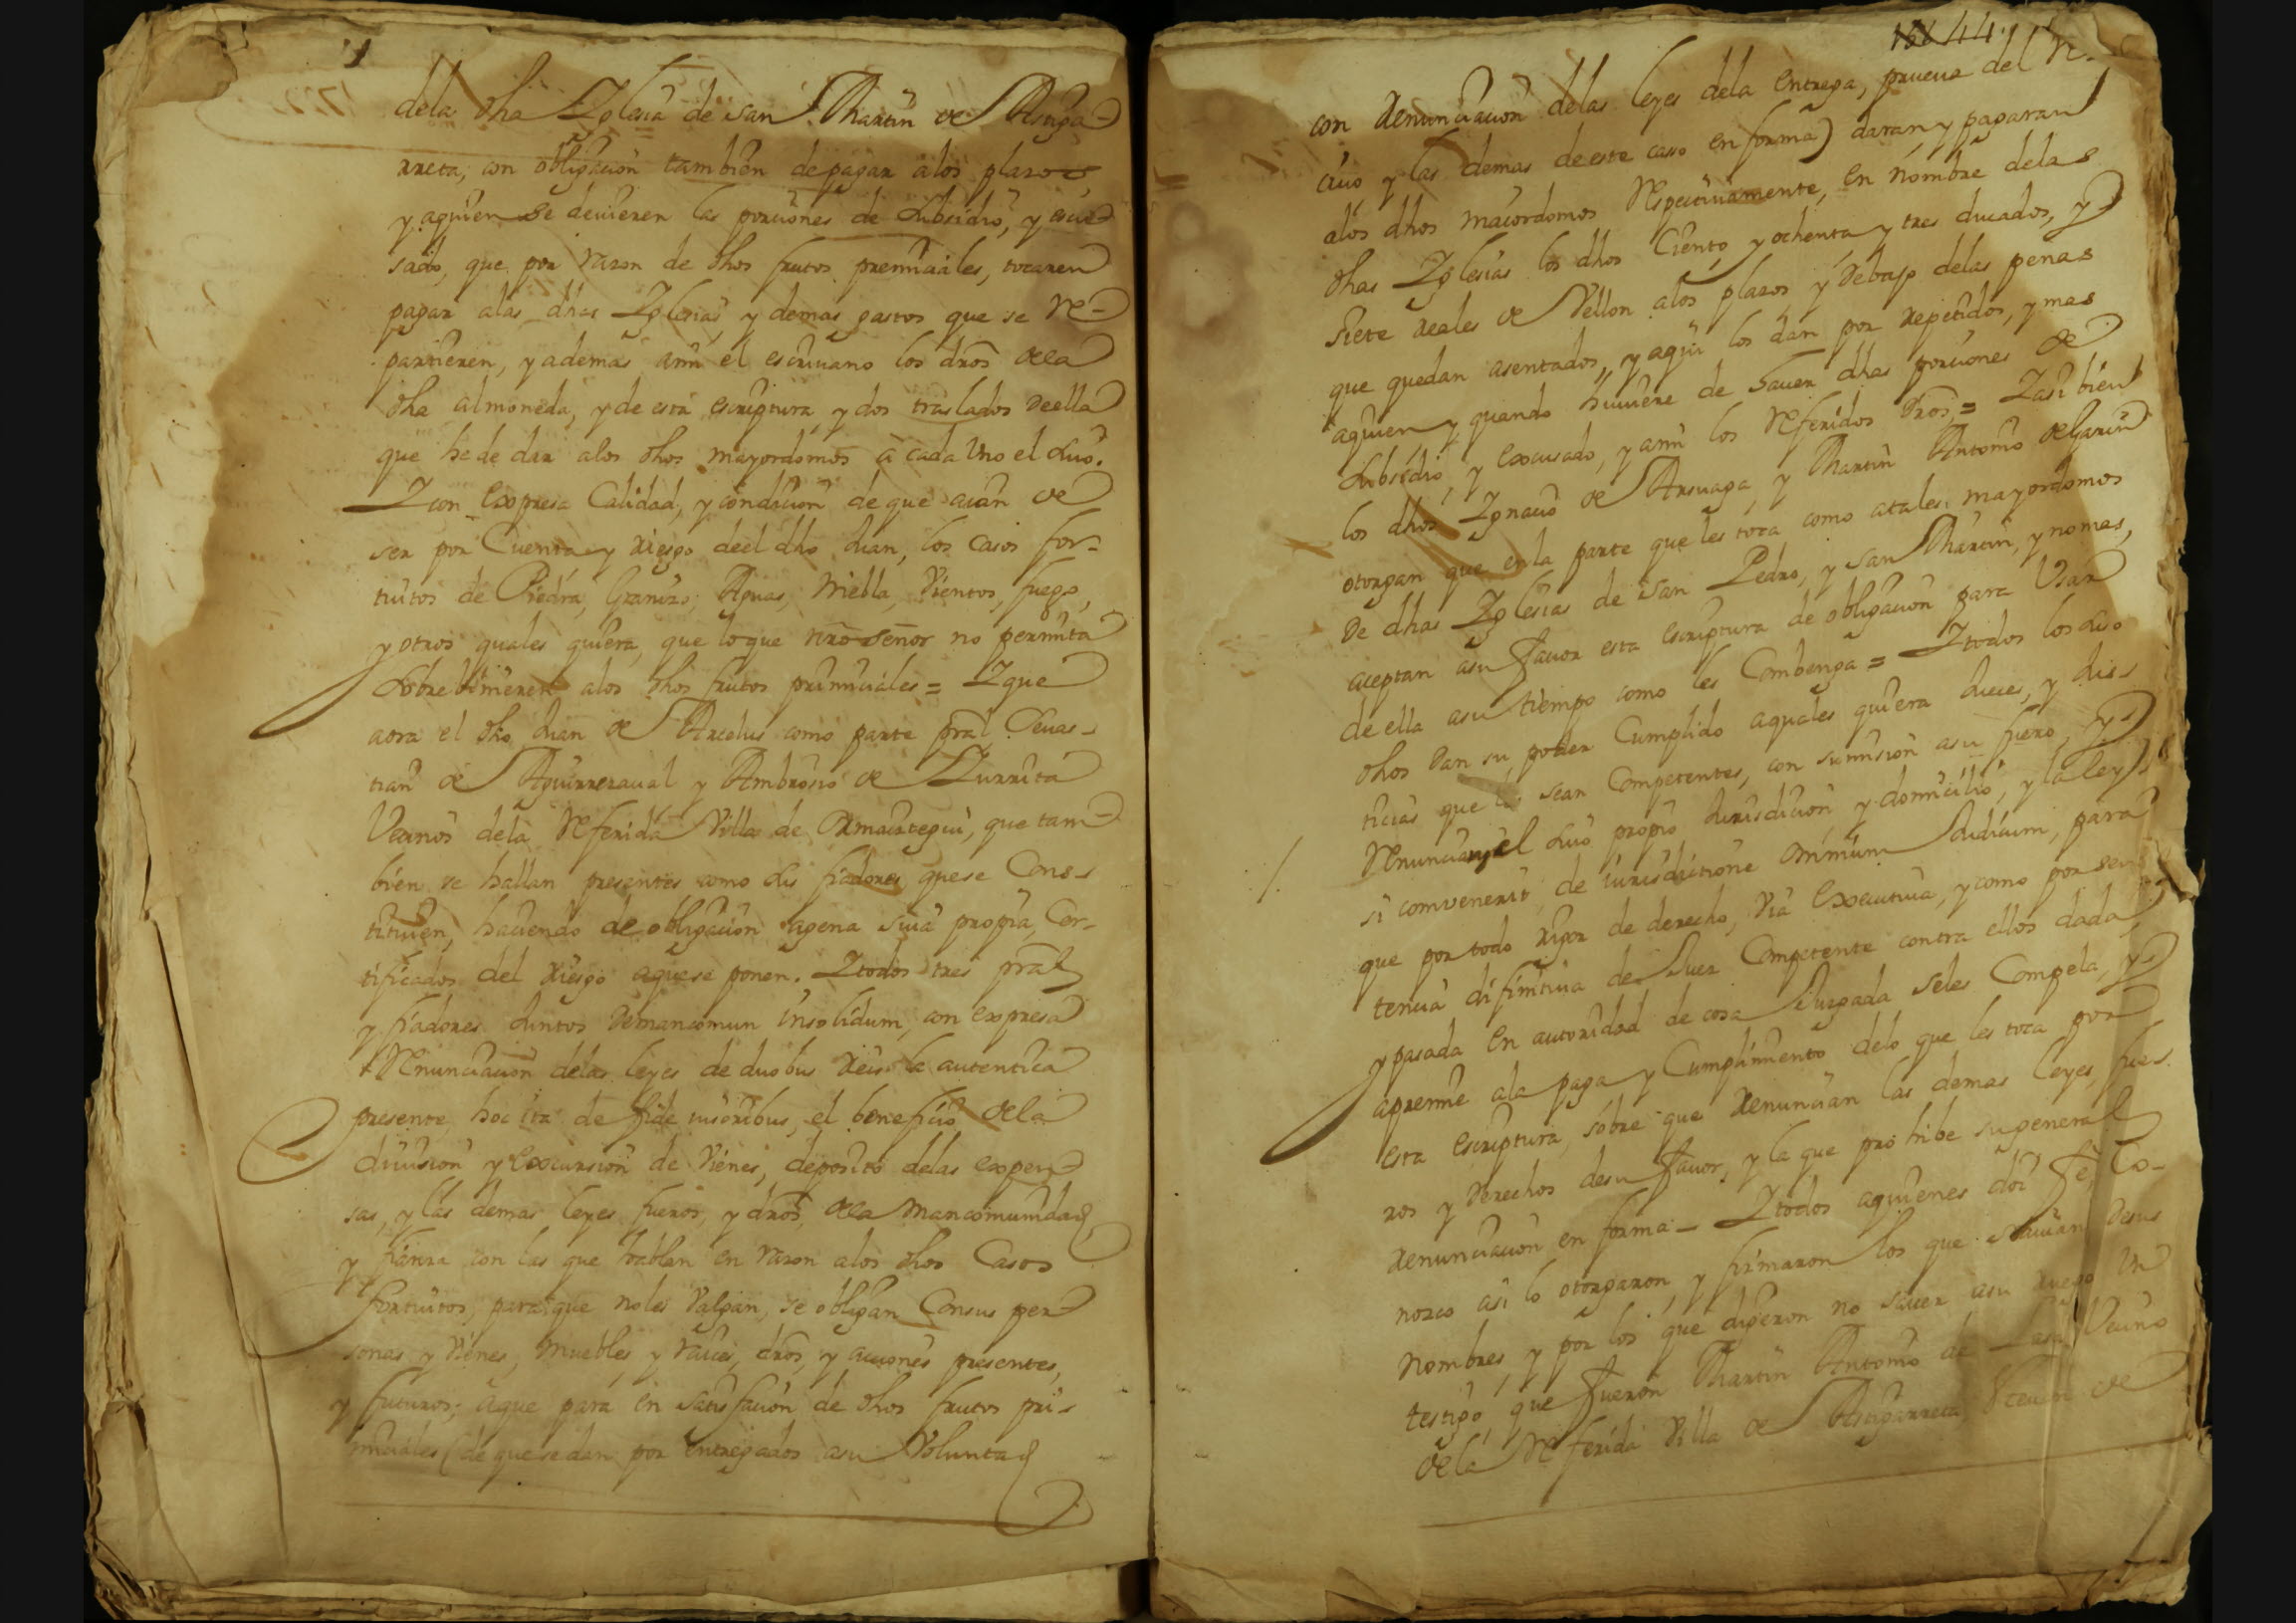 dela dha Iglesia de San Martin de Astiga-
rreta, con obligacion tambien de pagar alos plazos
y aquien se devieren las porciones de subsidio, y escu-
sado, que por razon de dhos frutos premiciales, tocaren
pagar alas dhas Iglesias, y demas gastos que se re-
partieren, y ademas ami el escrivano los dros dela
dha almoneda, y de esta escriptura, y dos traslados de ella
que he de dar alos dhos mayordomos a cada uno el suio.
I con expresa Calidad, y condicion de que aian de
ser por Cuenta y riesgo de el dho Juan, los casos for-
tuitos de Piedra, Granizo, Aguas, Niebla, Vientos, fuego,
y otros quales quiera, que lo que nro señor no permita
sobrebinieren alos dhos frutos primiciales = I que
aora el dho Juan de Arcelus como parte pral Sevas-
tian de Aguirrezaval y Ambrosio de Zurrita
Vecinos dela referida Villa de Ormaiztegui, que tam-
bien se hallan presentes como sus fiadores que se Cons-
tituien, haciendo de obligacion agena suia propia, Cer-
tificados del riesgo aque se ponen. I todos tres pral
y fiadores Juntos demancomun insolidum, con expresa
Renunciacion delas leyes de duobus reis la autentica
presente, hoc ita de fide iusoribus, el beneficio dela
division y excursion de Vienes, deposito delas expen-
sas, y las demas leyes fueros, y dros dela mancomunidad
y fianza con las que hablan en razon alos dhos Casos
fortuitos, para que noles Valgan, se obligan Consus per-
sonas y Vienes, muebles y raices, dros, y acciones presentes,
y futuros, aque para en satisfacion de dhos frutos pri-
miciales (de que se dan por entregados asu Voluntad
144
con renunciacion delas leyes dela entrega, prueva del re-
civo y las demas de este caso en forma) daran y pagaran
alos dhos maiordomos respectivamente, en nombre delas
dhas Iglesias los dhos Ciento y ochenta y tres ducados, y
siete reales de Vellon alos plazos y debajo delas penas
que quedan asentados, y aqui los dan por repetidos, y mas
aquien y quando huviere de haver dhas porciones de
subsidio, y excusado, y ami los referidos dros = I asi bien
los dhos Ignacio de Arsuaga y Martin Antonio de Garin
otorgan que en la parte que les toca como atales mayordomos
de dhas Iglesias de San Pedro, y San Martin, y nomas,
aceptan asu favor esta escriptura de obligacion para Usar
de ella asu tiempo como les Combenga = I todos los suso
dhos dan su poder Cumplido aquales quiera Jueces, y Jus-
ticias que les sean Competentes, con sumision asu fuero, y
Renuncian el suio propio Jurisdicion y domicilio, y la ley
si convenerit de iurisdictione omnium Judicum, para
que por todo rigor de derecho, via executiva, y como por sen-
tencia difinitiva de Juez Competente contra ellos dada,
y pasada en autoridad de cosa Juzgada seles Compela, y
apremie ala paga y Cumplimiento delo que les toca por
esta escriptura, sobre que renuncian las demas leyes, fue-
ros y derechos desu favor, y la que prohibe su general
renunciacion en forma - I todos aquienes doi fe, Co-
nozco asi lo otorgaron, y firmaron los que savian desus
nombres, y por los que dijeron no saver asu ruego un
testigo, que fueron Martin Antonio de Vecino
dela referida Villa de Astigarreta, Stevan de